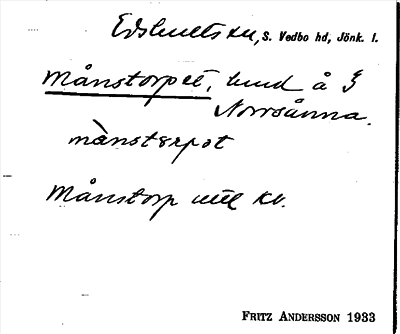 Edshults sn, S. Vedbo hd, Jönk. l.
Månstorpet, lund å §
Norrsånna.
mànstərpət
Månstorp utt kv.
FRITZ ANDERSSON 1933